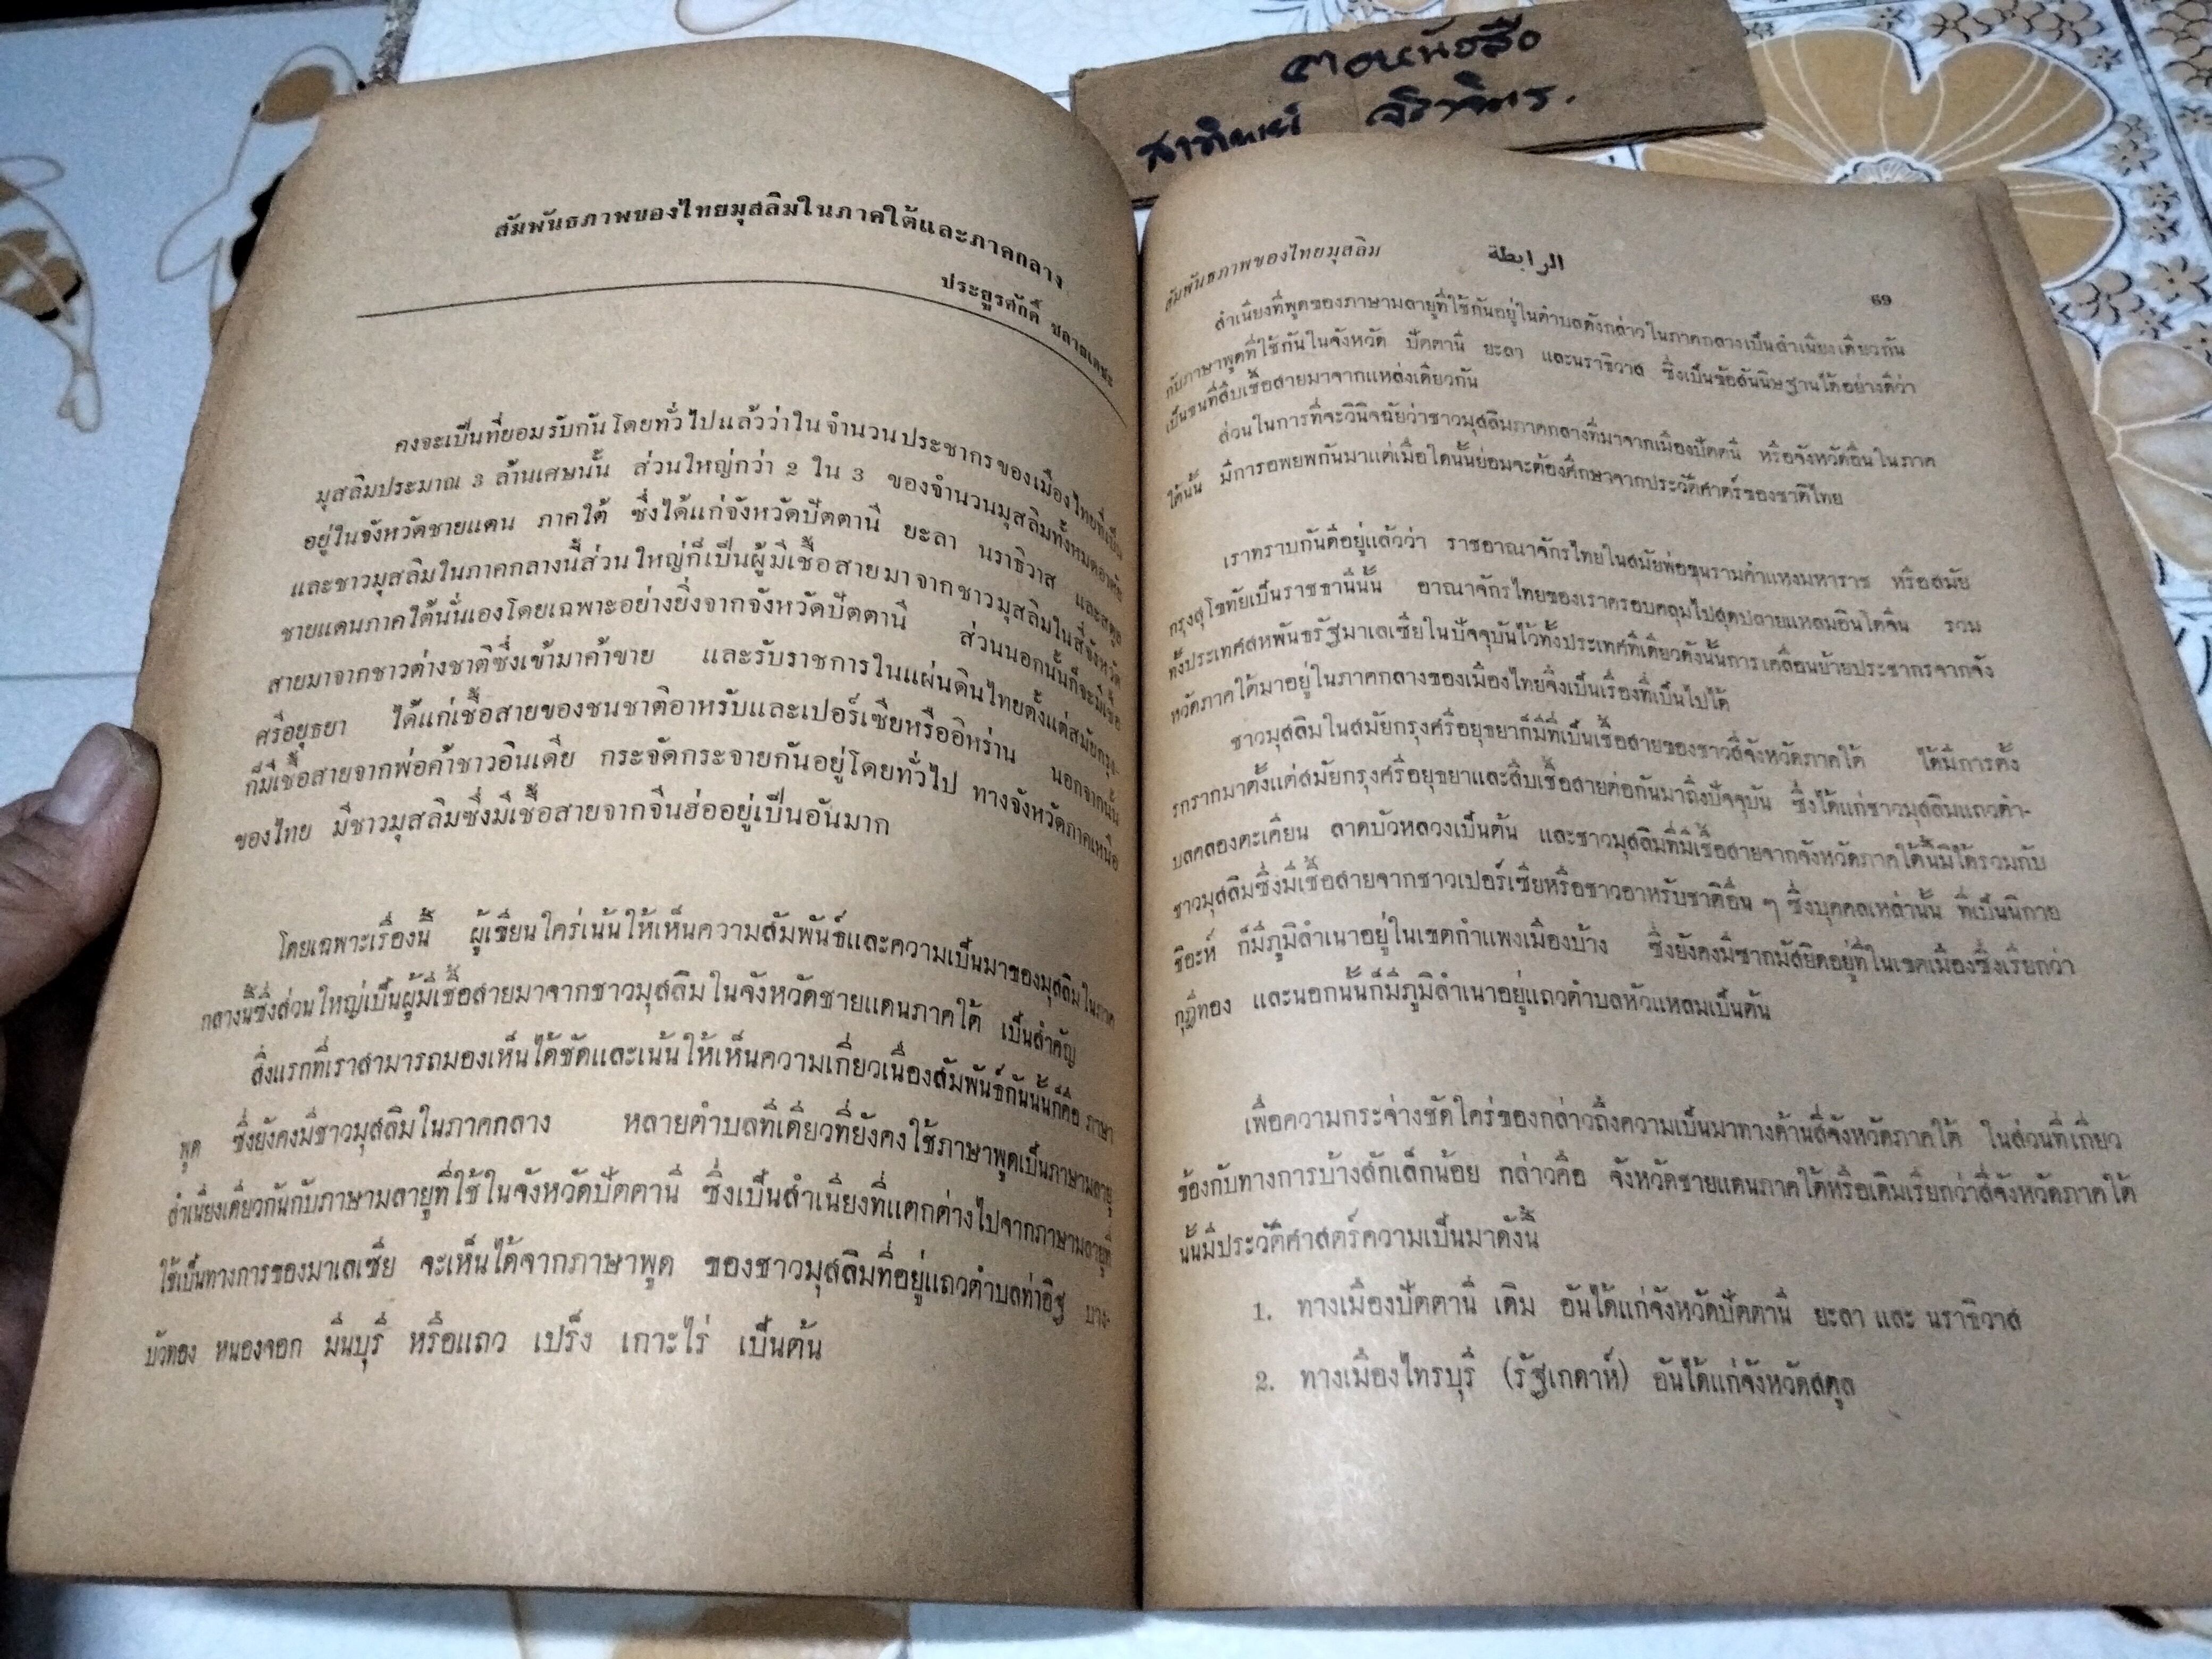 สัมพันธภาพของไทยมุสลิมในภาคใต้และภาคกลาง
ประยูรศักดิ์ ชลายนเดชะ
คงจะเป็นที่ยอมรับกันโดยทั่วไปแล้วว่าในจำนวนประชากรของเมืองไทยที่เป็น
มุสลิมประมาณ 3 ล้านเศษนั้น ส่วนใหญ่กว่า 2 ใน 3 ของจำนวนมุสลิมทั้งหมดอาศัย
อยู่ในจังหวัดชายแดน ภาคใต้ ซึ่งได้แก่จังหวัดปัตตานี ยะลา นราธิวาส และสตูล
และชาวมุสลิมในภาคกลางนี้ส่วนใหญ่ก็เป็นผู้มีเชื้อสายมาจากชาวมุสลิมในสี่จังหวัด
ชายแดนภาคใต้นั่นเองโดยเฉพาะอย่างยิ่งจากจังหวัดปัตตานี ส่วนนอกนั้นก็จะมีเชื้อ
สายมาจากชาวต่างชาติซึ่งเข้ามาค้าขาย และรับราชการในแผ่นดินไทยตั้งแต่สมัยกรุง-
ศรีอยุธยา ได้แก่เชื้อสายของชนชาติอาหรับและเปอร์เซียหรืออิหร่าน นอกจากนั้น
ก็มีเชื้อสายจากพ่อค้าชาวอินเดีย กระจัดกระจายกันอยู่โดยทั่วไป ทางจังหวัดภาคเหนือ
ของไทย มีชาวมุสลิมซึ่งมีเชื้อสายจากจีนฮ่ออยู่เป็นอันมาก
โดยเฉพาะเรื่องนี้ ผู้เขียนใคร่เน้นให้เห็นความสัมพันธ์และความเป็นมาของมุสลิมในภาค
กลางนี้ซึ่งส่วนใหญ่เป็นผู้มีเชื้อสายมาจากชาวมุสลิมในจังหวัดชายแดนภาคใต้ เป็นสำคัญ
สิ่งแรกที่เราสามารถมองเห็นได้ชัดและเน้นให้เห็นความเกี่ยวเนื่องสัมพันธ์กันนั้นก็คือ ภาษา
พูด ซึ่งยังคงมีชาวมุสลิมในภาคกลาง หลายตำบลทีเดียวที่ยังคงใช้ภาษาพูดเป็นภาษามลายู
สำเนียงเดียวกันกับภาษามลายูที่ใช้ในจังหวัดปัตตานี ซึ่งเป็นสำเนียงที่แตกต่างไปจากภาษามลายูที่
ใช้เป็นทางการของมาเลเซีย จะเห็นได้จากภาษาพูด ของชาวมุสลิมที่อยู่แถวตำบลท่าอิฐ บาง-
บัวทอง หนองจอก มีนบุรี หรือแถว เปร็ง เกาะไร่ เป็นต้น
สัมพันธภาพของไทยมุสลิม الرابطة 69
สำเนียงที่พูดของภาษามลายูที่ใช้กันอยู่ในตำบลดังกล่าวในภาคกลางเป็นสำเนียงเดียวกัน
กับภาษาพูดที่ใช้กันในจังหวัด ปัตตานี ยะลา และนราธิวาส ซึ่งเป็นข้อสันนิษฐานได้อย่างดีว่า
เป็นชนที่สืบเชื้อสายมาจากแหล่งเดียวกัน
ส่วนในการที่จะวินิจฉัยว่าชาวมุสลิมภาคกลางที่มาจากเมืองปัตตานี หรือจังหวัดอื่นในภาค
ใต้นั้น มีการอพยพกันมาแต่เมื่อใดนั้นย่อมจะต้องศึกษาจากประวัติศาตร์ของชาติไทย
เราทราบกันดีอยู่แล้วว่า ราชอาณาจักรไทยในสมัยพ่อขุนรามคำแหงมหาราช หรือสมัย
กรุงสุโขทัยเป็นราชธานีนั้น อาณาจักรไทยของเราครอบคลุมไปสุดปลายแหลมอินโดจีน รวม
ทั้งประเทศสหพันธรัฐมาเลเซียในปัจจุบันไว้ทั้งประเทศทีเดียวดังนั้นการเคลื่อนย้ายประชากรจากจัง
หวัดภาคใต้มาอยู่ในภาคกลางของเมืองไทยจึงเป็นเรื่องที่เป็นไปได้
ชาวมุสลิมในสมัยกรุงศรีอยุธยาก็มีที่เป็นเชื้อสายของชาวสี่จังหวัดภาคใต้ ได้มีการตั้ง
รกรากมาตั้งแต่สมัยกรุงศรีอยุธยาและสืบเชื้อสายต่อกันมาถึงปัจจุบัน ซึ่งได้แก่ชาวมุสลิมแถวตำ-
บลคลองตะเคียน ลาดบัวหลวงเป็นต้น และชาวมุสลิมที่มีเชื้อสายจากจังหวัดภาคใต้นี้มิได้รวมกับ
ชาวมุสลิมซึ่งมีเชื้อสายจากชาวเปอร์เซียหรือชาวอาหรับชาติอื่น ๆ ซึ่งบุคคลเหล่านั้น ที่เป็นนิกาย
ชีอะห์ ก็มีภูมิลำเนาอยู่ในเขตกำแพงเมืองบ้าง ซึ่งยังคงมีซากมัสยิดอยู่ที่ในเขตเมืองซึ่งเรียกว่า
กุฎีทอง และนอกนั้นก็มีภูมิลำเนาอยู่แถวตำบลหัวแหลมเป็นต้น
เพื่อความกระจ่างชัดใคร่ขอกล่าวถึงความเป็นมาทางด้านสี่จังหวัดภาคใต้ ในส่วนที่เกี่ยว
ข้องกับทางการบ้างสักเล็กน้อย กล่าวคือ จังหวัดชายแดนภาคใต้หรือเดิมเรียกว่าสี่จังหวัดภาคใต้
นั้นมีประวัติศาสตร์ความเป็นมาดังนี้
1. ทางเมืองปัตตานี เดิม อันได้แก่จังหวัดปัตตานี ยะลา และ นราธิวาส
2. ทางเมืองไทรบุรี (รัฐเกดาห์) อันได้แก่จังหวัดสตูล